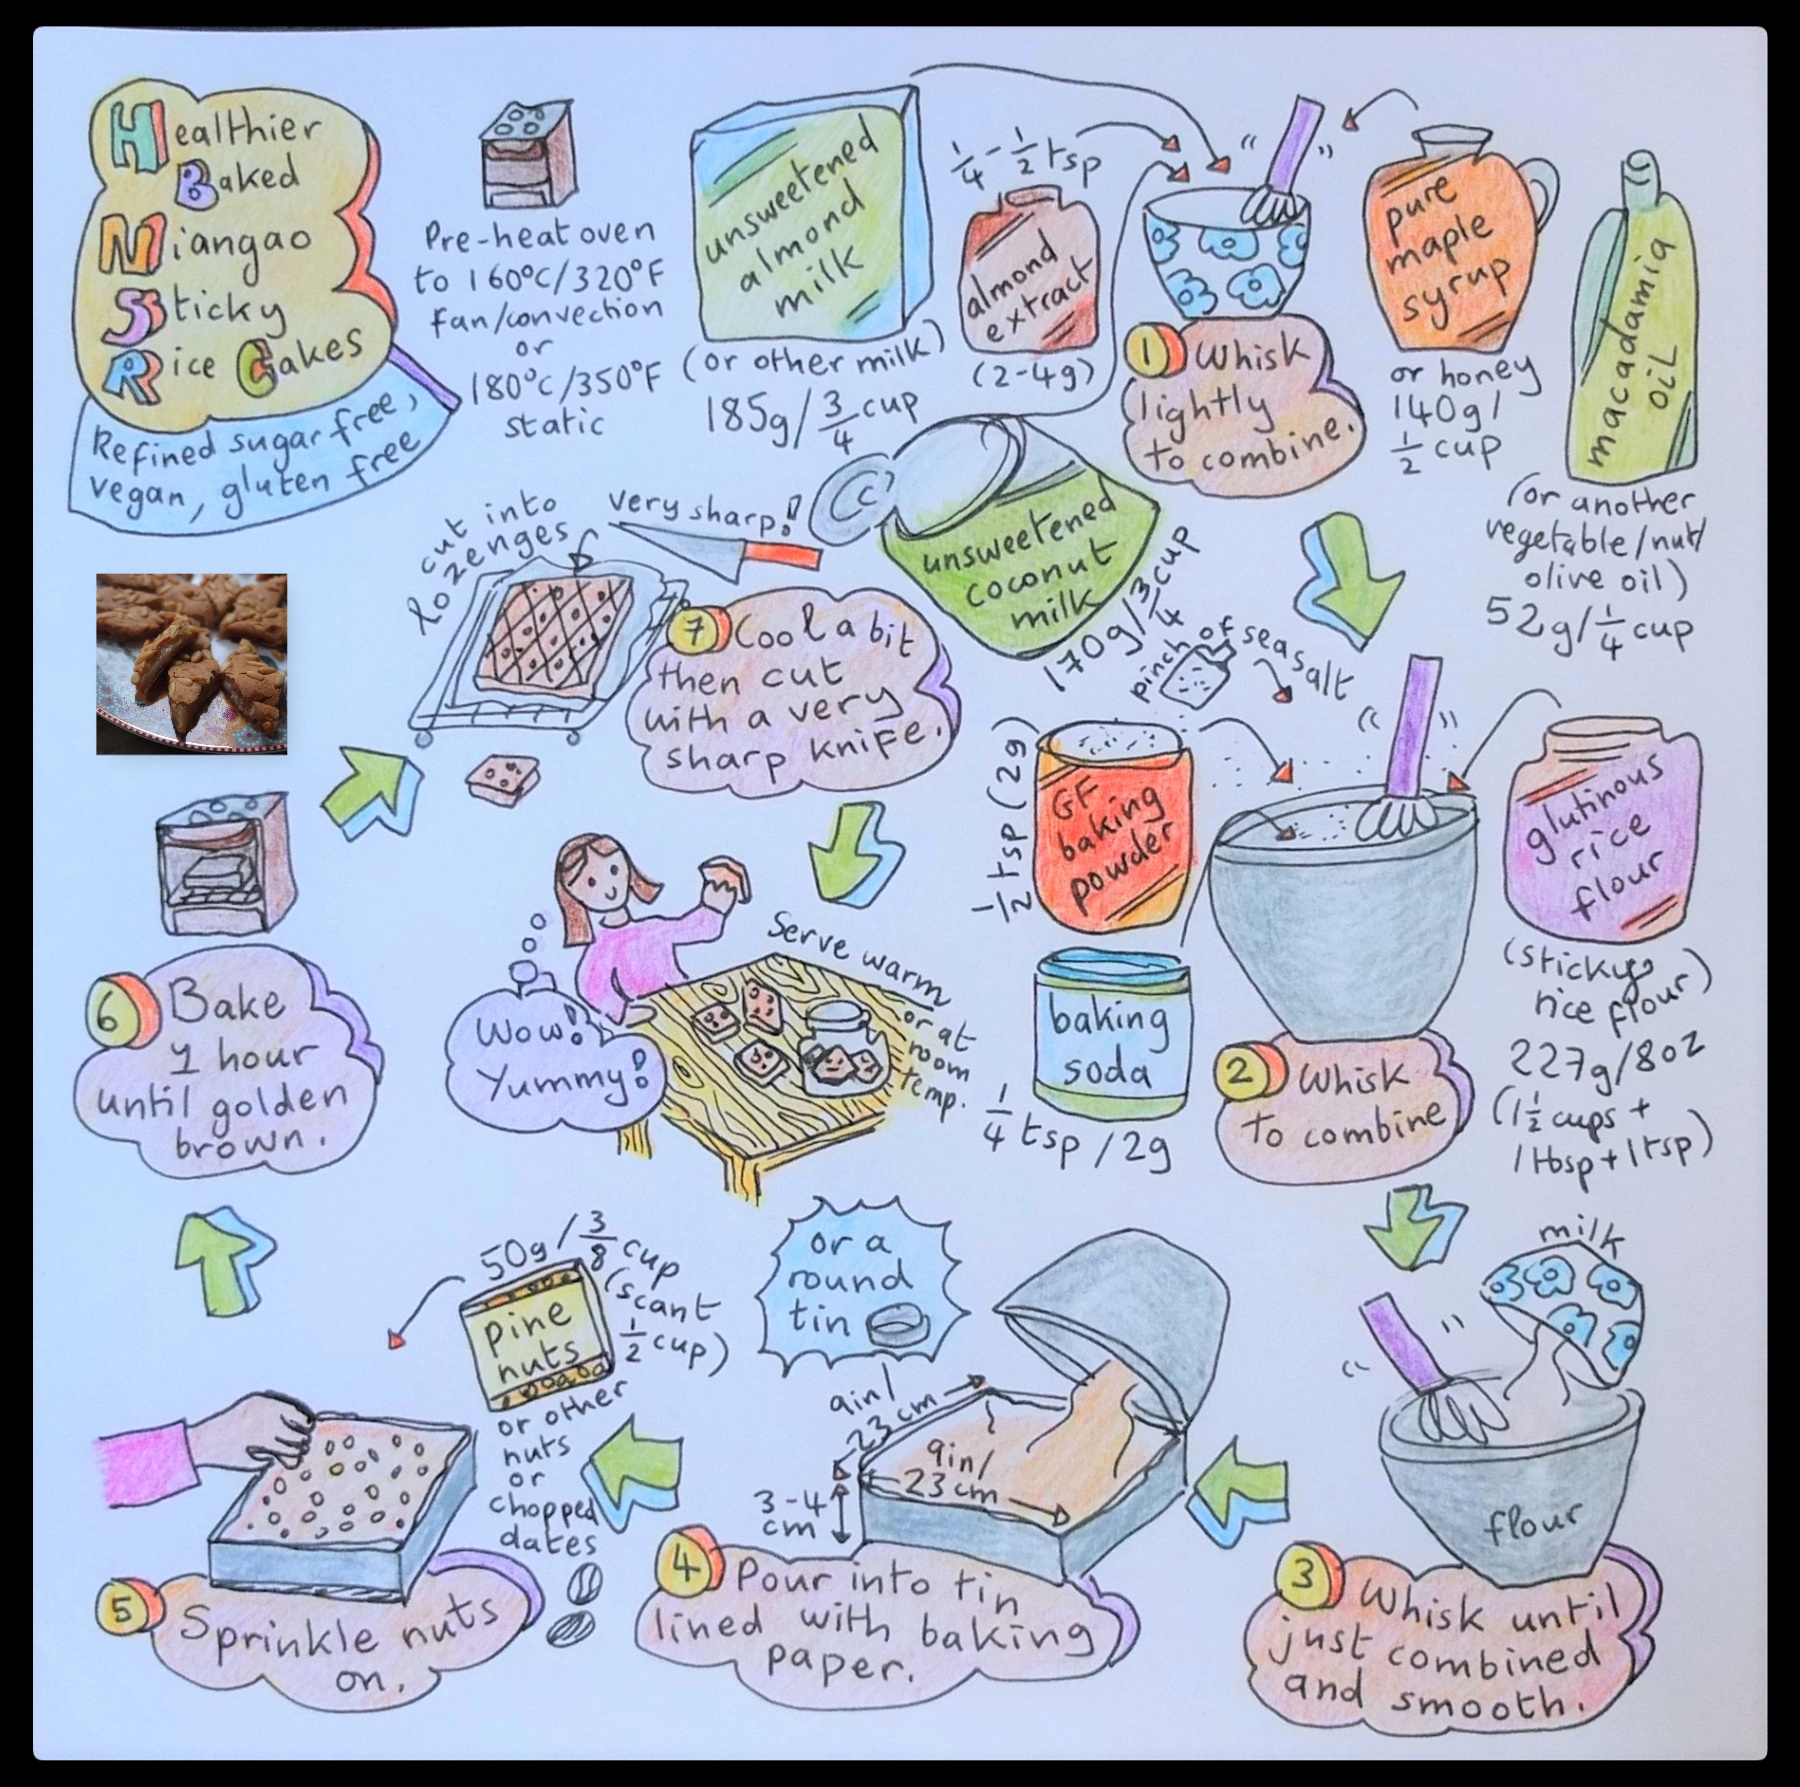 Healthier
Baked
Niangao
Sticky
Rice Cakes
Refined sugar free,
vegan, gluten free
Pre-heat oven
to 160°C/320°F
fan/convection
or
180°C/350°F
static
unsweetened
almond
milk
(or other milk)
185g/3/4 cup
1/4-1/2 tsp
almond
extract
(2-4g)
pure
maple
syrup
or honey
140g/
1/2 cup
macadamia
oil
(or another
vegetable/nut/
olive oil)
52g/1/4 cup
unsweetened
coconut
milk
170g/3/4 cup
1 Whisk
lightly
to combine.
pinch of sea salt
GF
baking
powder
1/2 tsp (2g)
baking
soda
1/4 tsp/2g
glutinous
rice
flour
(sticky
rice flour)
227g/8oz
(1 1/2 cups +
1 tbsp + 1 tsp)
2 Whisk
to combine
milk
flour
3 Whisk until
just combined
and smooth.
or a
round
tin
9in/
23cm
9in/
23cm
3-4
cm
4 Pour into tin
lined with baking
paper.
50g/3/8 cup
(scant
1/2 cup)
pine
nuts
or other
nuts
or
chopped
dates
5 Sprinkle nuts
on.
6 Bake
1 hour
until golden
brown.
cut into
lozenges
very sharp!
7 Cool a bit
then cut
with a very
sharp knife.
Serve warm
or at
room
temp.
Wow!
Yummy!